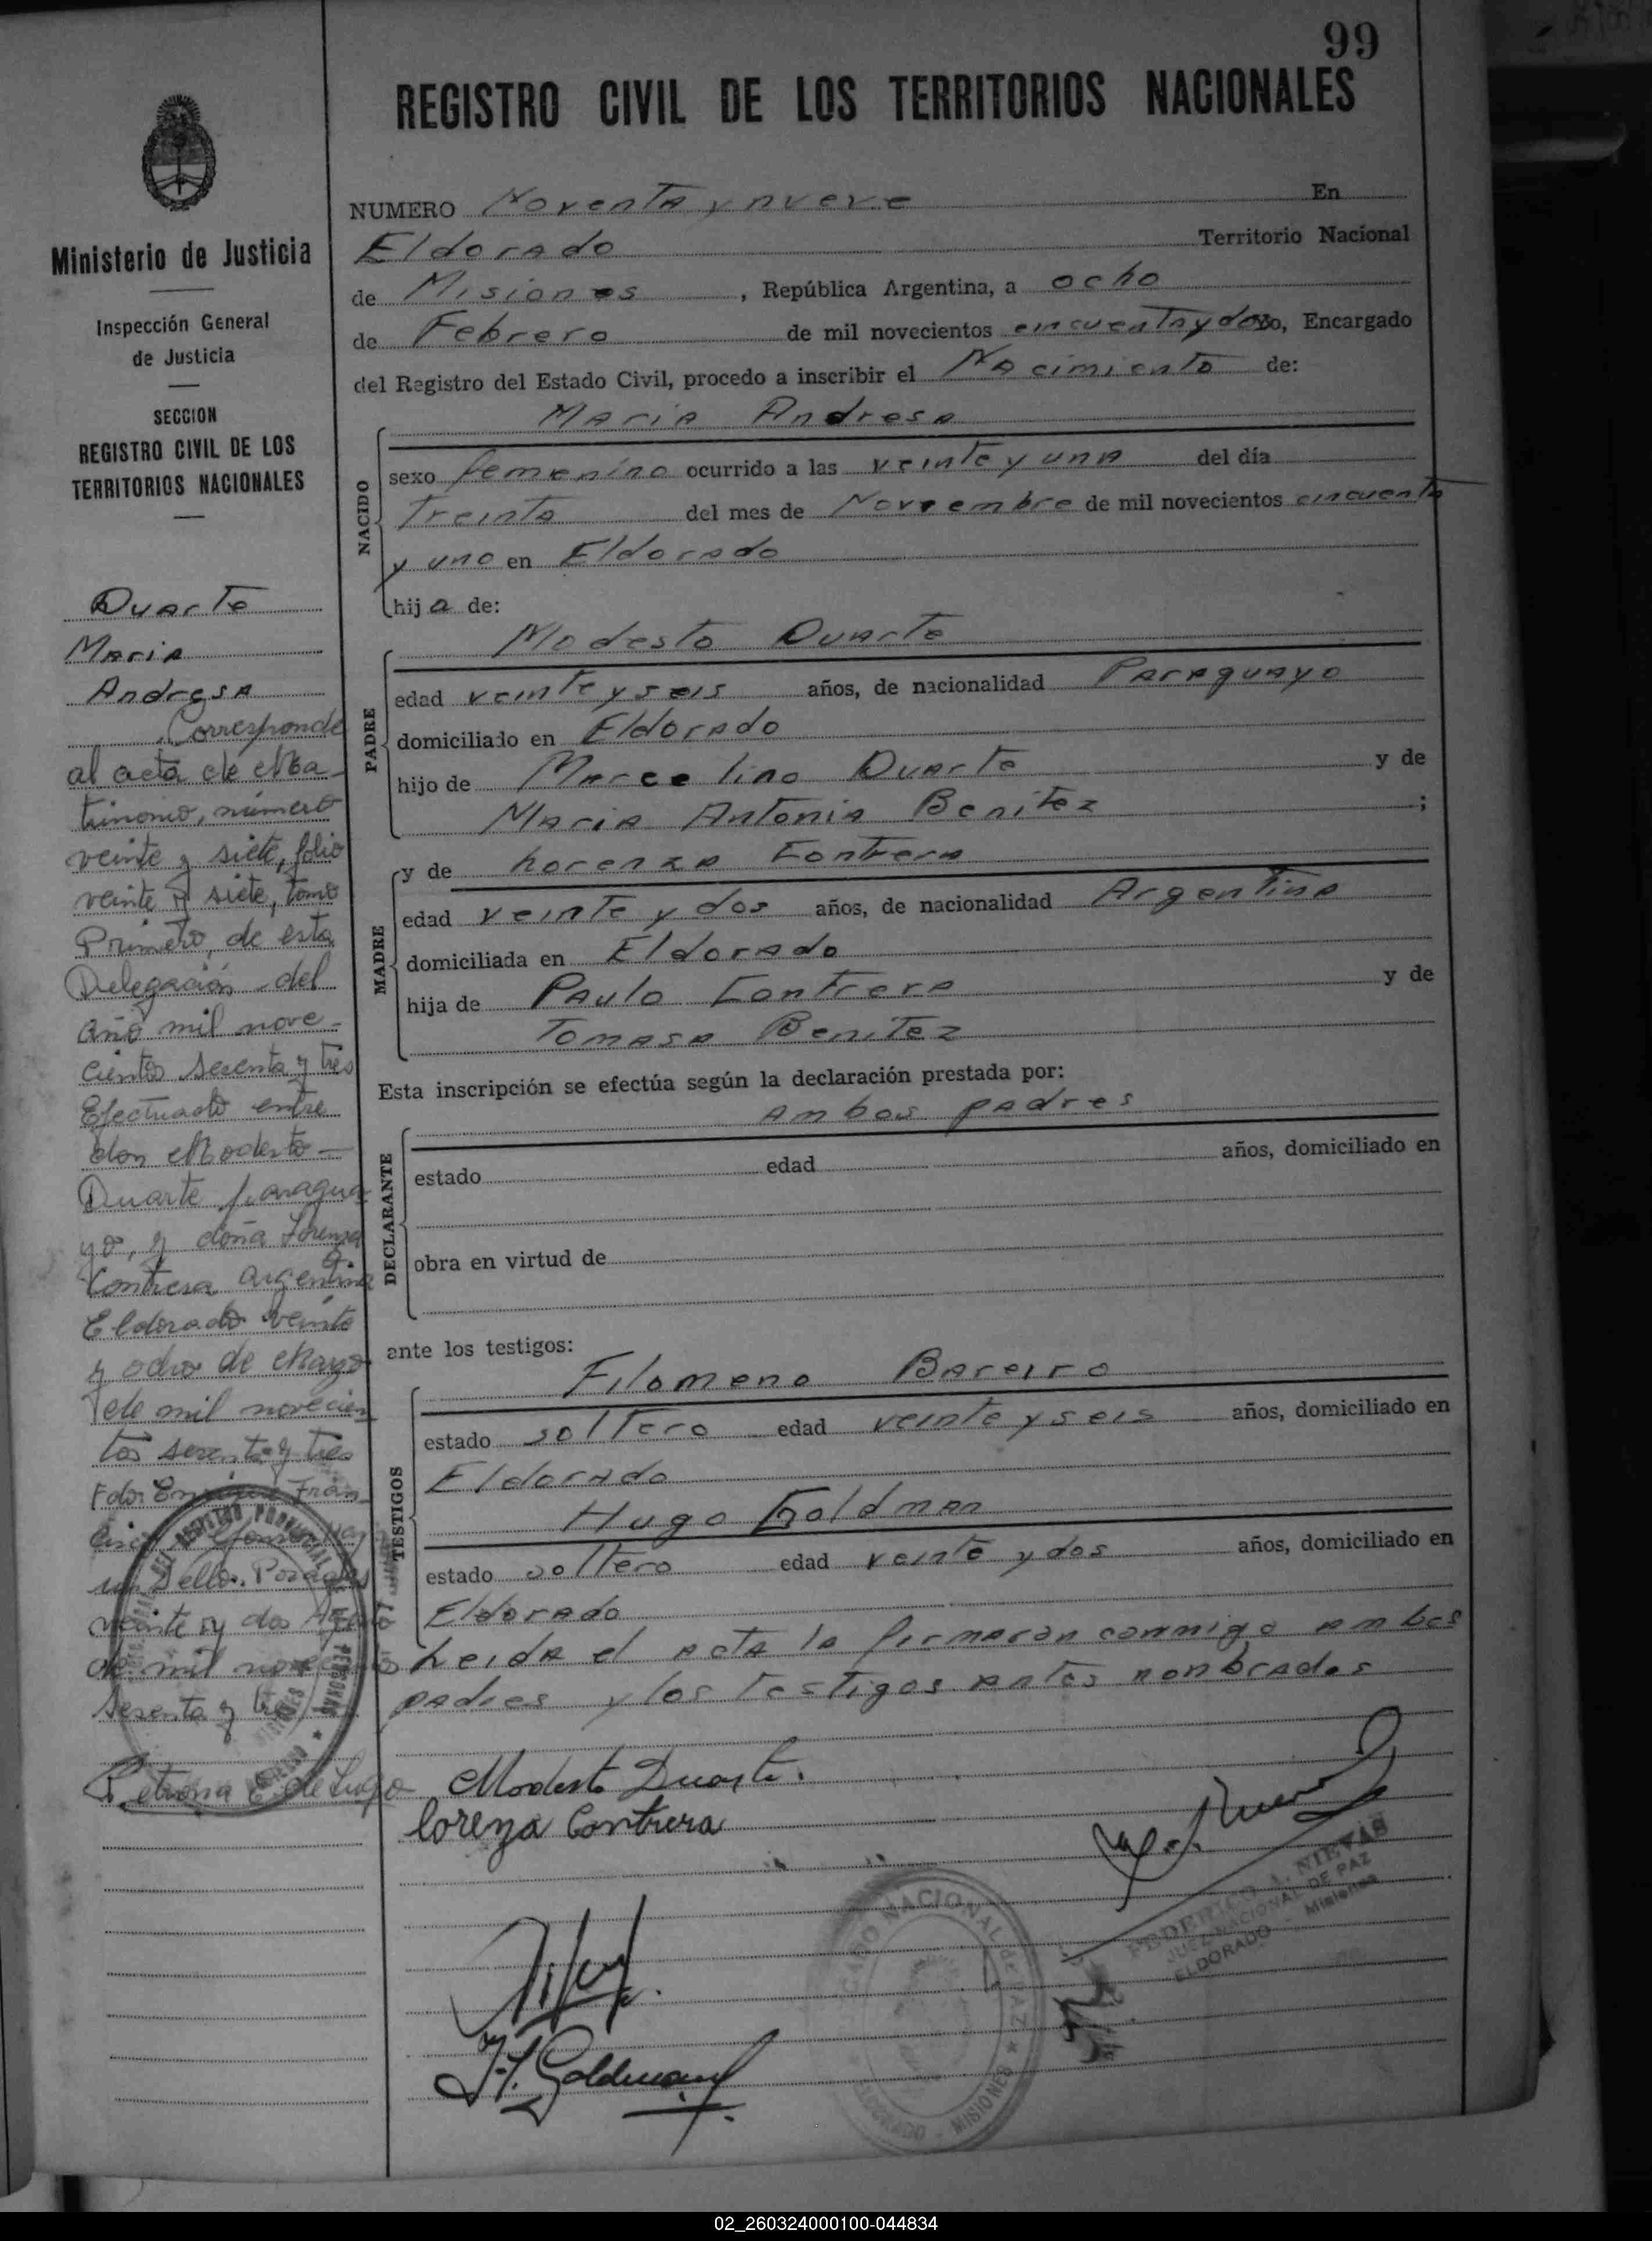 99
REGISTRO CIVIL DE LOS TERRITORIOS NACIONALES
NUMERO Noventa y nueve En
Eldorado Territorio Nacional
de Misiones, República Argentina, a ocho
de Febrero de mil novecientos cincuenta y dos Yo, Encargado
del Registro del Estado Civil, procedo a inscribir el Nacimiento de:
NACIDO
Maria Andresa
sexo femenino ocurrido a las veinte y una del día
treinta del mes de Noviembre de mil novecientos cincuenta
y uno en Eldorado
hija de:
PADRE
Modesto Duarte
edad veinte y seis años, de nacionalidad Paraguayo
domiciliado en Eldorado
hijo de Marcelino Duarte y de
Maria Antonia Benitez ;
MADRE
y de Lorenza Contrera
edad veinte y dos años, de nacionalidad Argentina
domiciliada en Eldorado
hija de Paulo Contrera y de
Tomasa Benitez
Esta inscripción se efectúa según la declaración prestada por:
DECLARANTE
ambos padres
estado edad años, domiciliado en
obra en virtud de
ante los testigos:
TESTIGOS
Filomeno Bareiro
estado soltero edad veinte y seis años, domiciliado en
Eldorado
Hugo Goldman
estado soltero edad veinte y dos años, domiciliado en
Eldorado
Leida el acta la firmaron conmigo ambos
padres y los testigos antes nonbrados
Modesto Duarte.
lorenza Contrera
H. Goldman
FEDERICO A. NIEVAS
JUEZ NACIONAL DE PAZ
ELDORADO - Misiones
JUZGADO NACIONAL de PAZ
ELDORADO - MISIONES
Ministerio de Justicia
Inspección General
de Justicia
SECCION
REGISTRO CIVIL DE LOS
TERRITORIOS NACIONALES
Duarte
Maria
Andresa
Corresponde
al acta de Ma-
trimonio, número
veinte y siete, folio
veinte y siete, tomo
Primero, de esta
Delegación del
año mil nove-
cientos sesenta y tres
Efectuado entre
don Modesto
Duarte paragua
yo, y doña Lorenza
Contrera argentina
Eldorado veinte
y ocho de Mayo
de mil novecien
tos sesenta y tres
Fdo: Enrique Fran-
un Sello. Posadas
veinte y dos Agosto
de mil novecientos
sesenta y tres
Petrona E. de Lugo
02_260324000100-044834